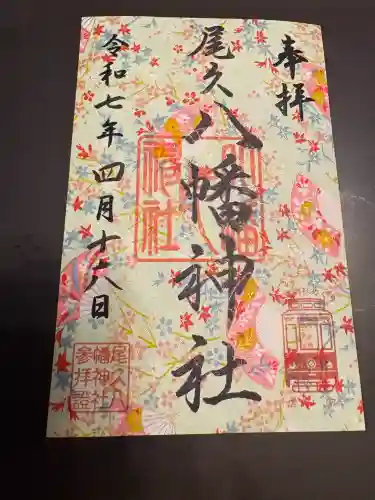 奉拝
尾久八幡神社
令和七年四月十六日
尾久八
幡神社
参拝證